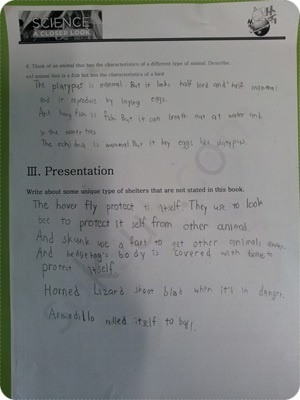 SCIENCE
A CLOSER LOOK
6. Think of an animal that has the characteristics of a different type of animal. Describe.
an animal that is a fish but has the characteristics of a bird
The platypus is mammal But it looks half bird and half mammal
And it reproduce by laying eggs.
And lung fish is fish But it can breath out at water and
in the water too.
The echidna is mammal But it lay eggs like platypus.
III. Presentation
Write about some unique type of shelters that are not stated in this book.
The hover fly protect to itself. They use to look
bee to protect it self from other animal.
And skunk use a fart to get other animals away.
And hedgehog's body is covered with bone to
protect itself.
Horned Lizard shoot blod when it's in danger.
Armadillo rolled itself to ball.